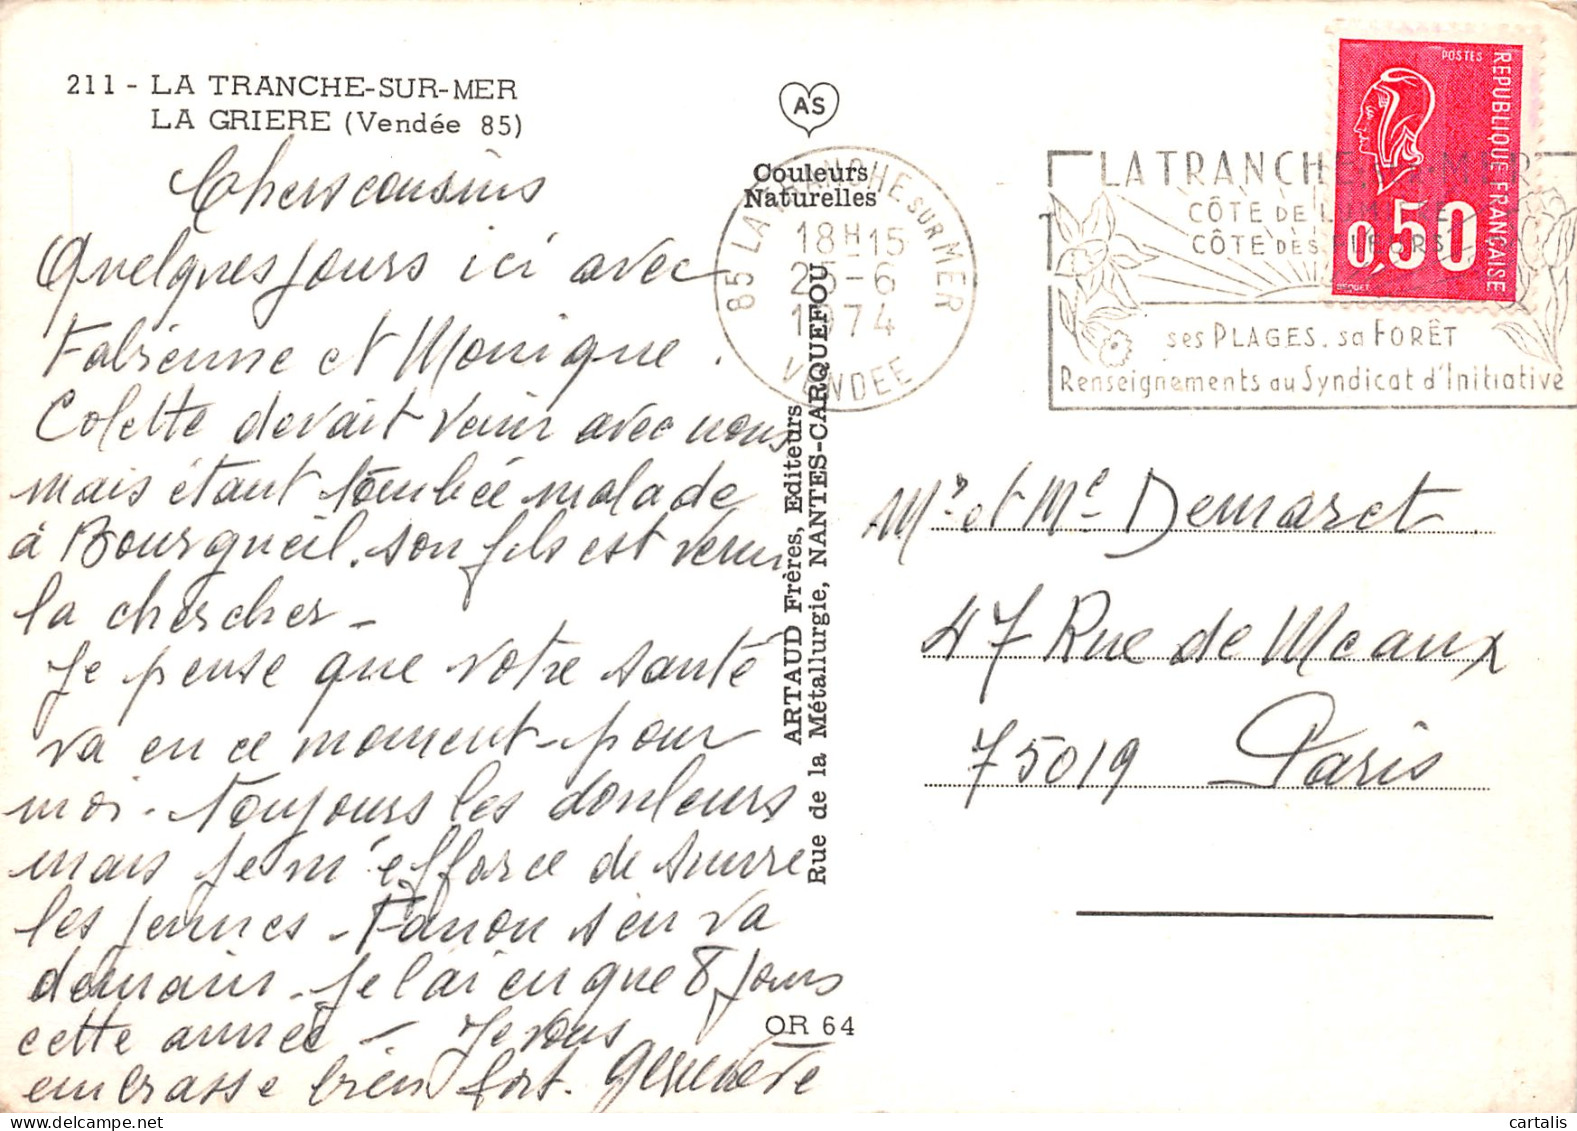 211 - LA TRANCHE-SUR-MER
LA GRIERE (Vendée 85)
Chers cousins
Quelques jours ici avec
Fabienne et Monique.
Colette devait venir avec nous
mais étant tombée malade
à Bourgueil. son fils est venu
la chercher -
Je pense que votre santé
va en ce moment - pour
moi - toujours les douleurs
mais je m'efforce de suivre
les jeunes - Fanon s'en va
demain - Je l'ai eu que 8 jours
cette année - Je vous
embrasse bien fort. Geneviève
AS
Couleurs
Naturelles
ARTAUD Frères, Editeurs
Rue de la Métallurgie, NANTES-CARQUEFOU
OR 64
85 LA TRANCHE SUR MER
18H15
25-6
1974
VENDEE
LA TRANCHE S-MER
CÔTE DE LUMIERE
CÔTE DES FLEURS
ses PLAGES. sa FORÊT
Renseignements au Syndicat d'Initiative
POSTES
REPUBLIQUE FRANÇAISE
0,50
BEQUET
Mr et Me Demaret
47 Rue de Meaux
75019 Paris
cartalis